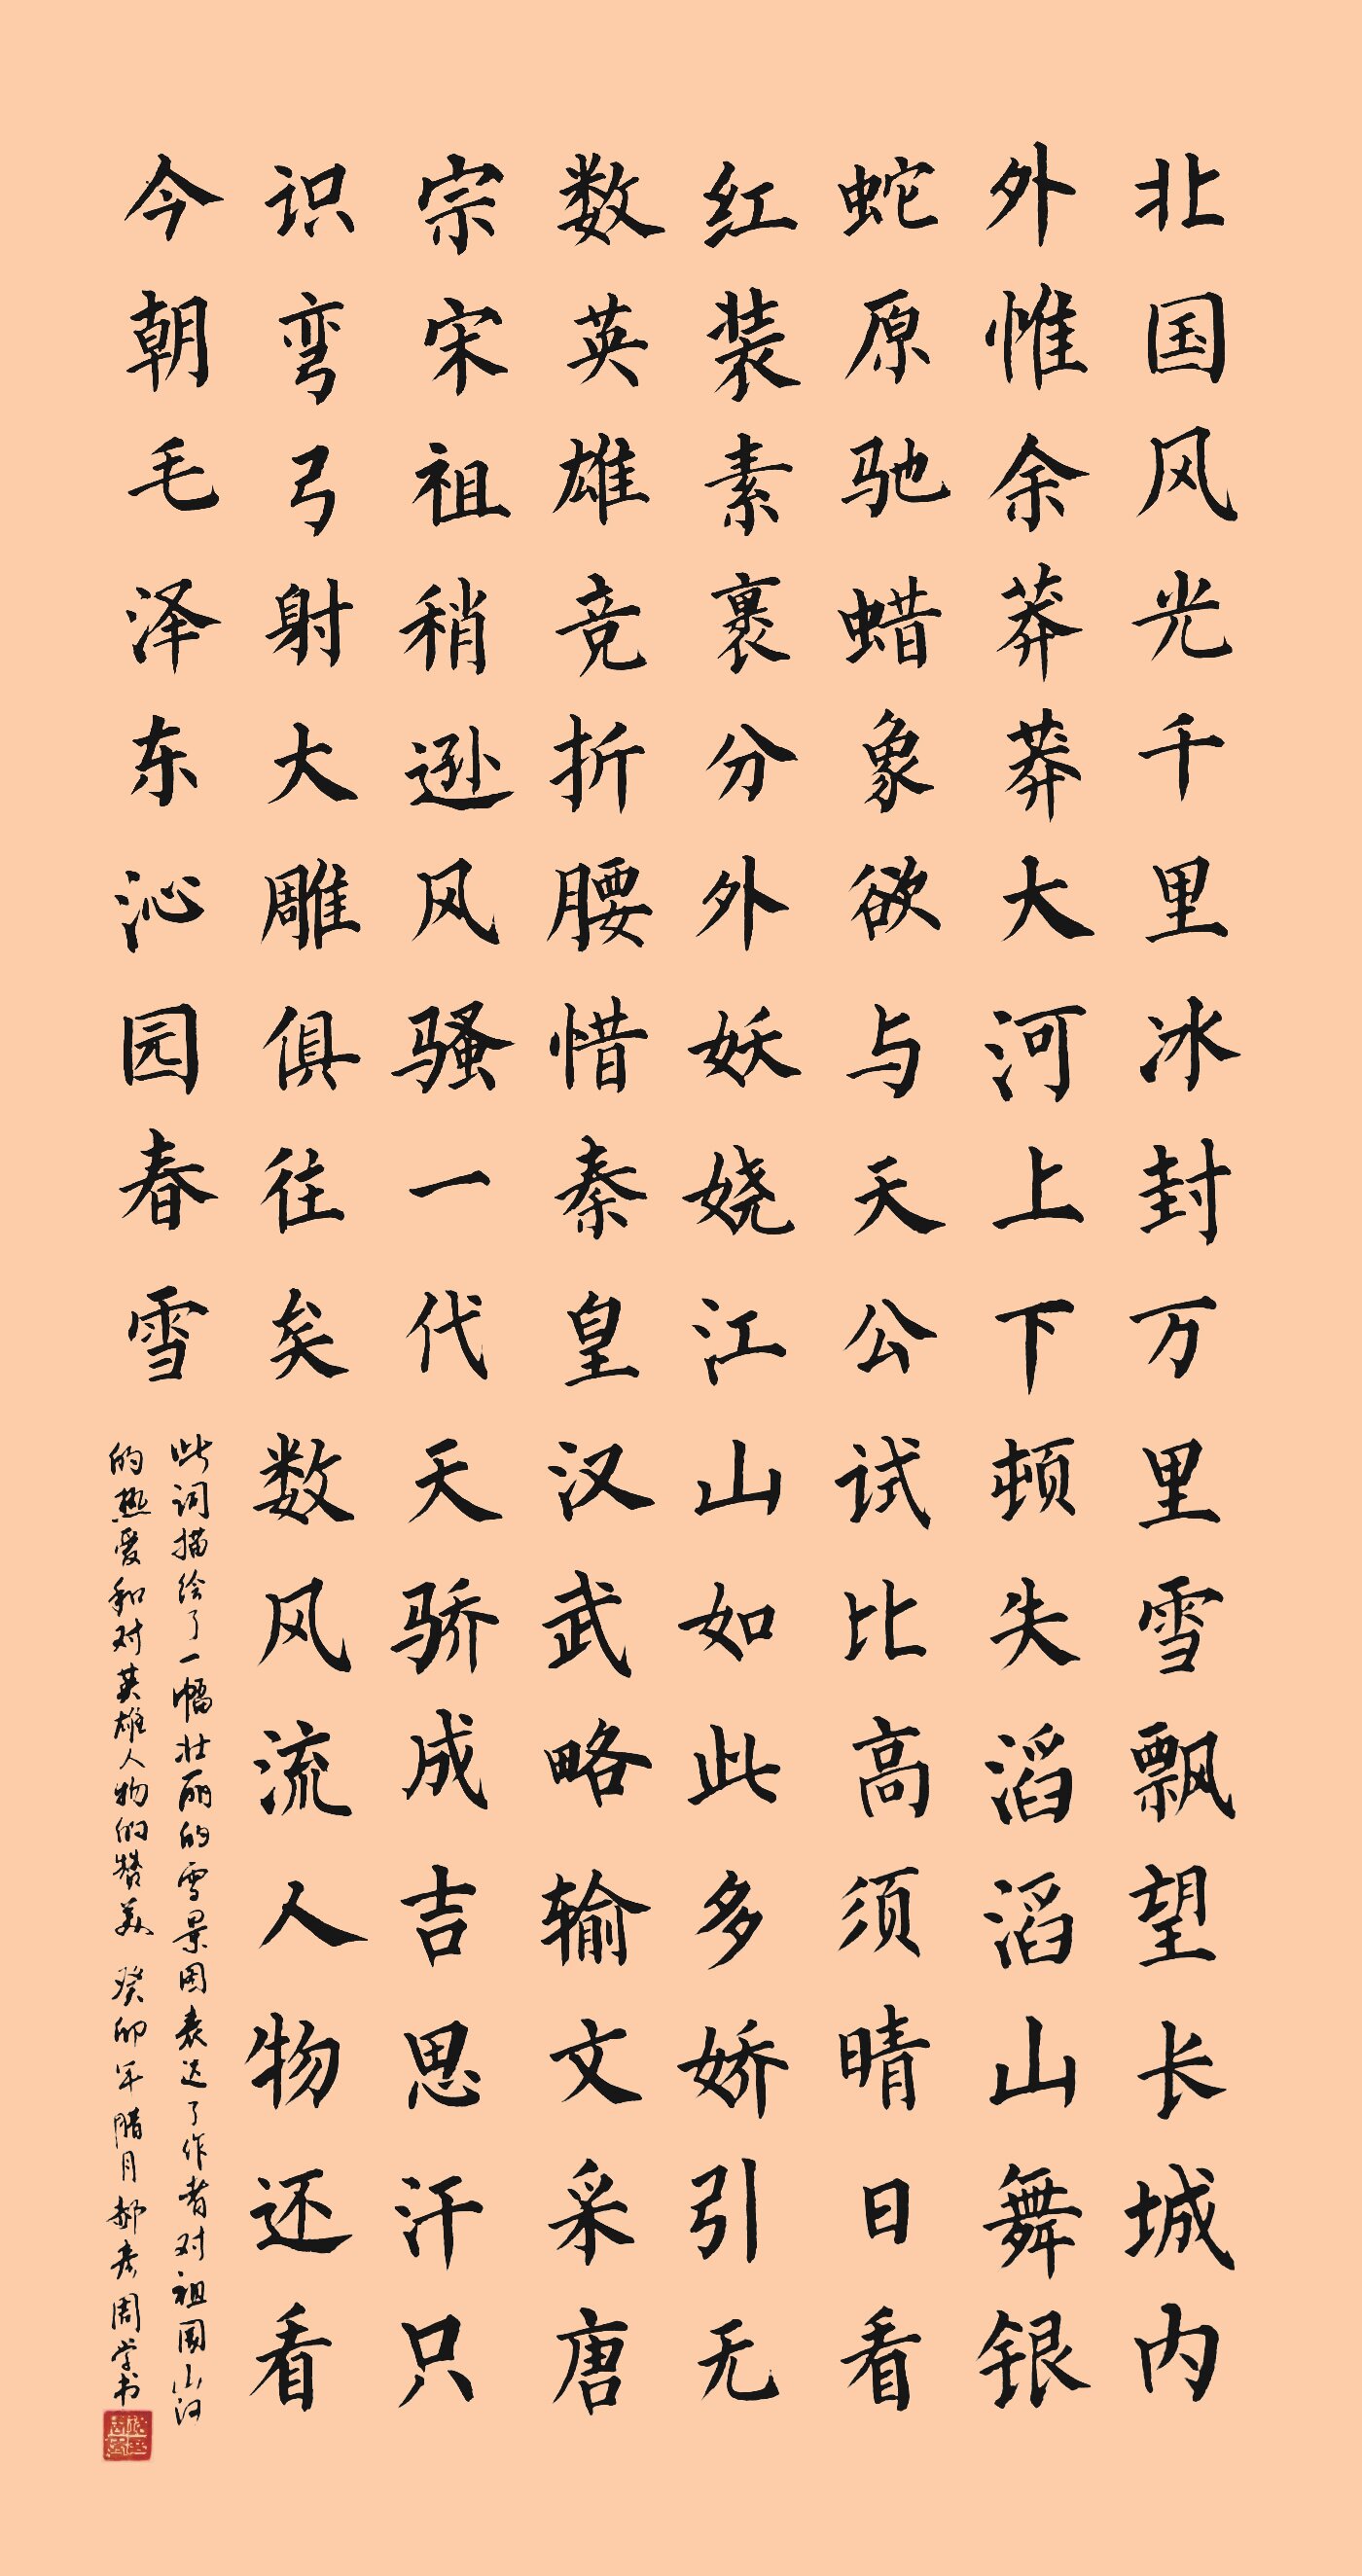 北国风光千里冰封万里雪飘望长城内
外惟余莽莽大河上下顿失滔滔山舞银
蛇原驰蜡象欲与天公试比高须晴日看
红装素裹分外妖娆江山如此多娇引无
数英雄竞折腰惜秦皇汉武略输文采唐
宗宋祖稍逊风骚一代天骄成吉思汗只
识弯弓射大雕俱往矣数风流人物还看
今朝毛泽东沁园春雪
此词描绘了一幅壮丽的雪景图表达了作者对祖国山河
的热爱和对英雄人物的赞美 癸卯年腊月郝秀周学书